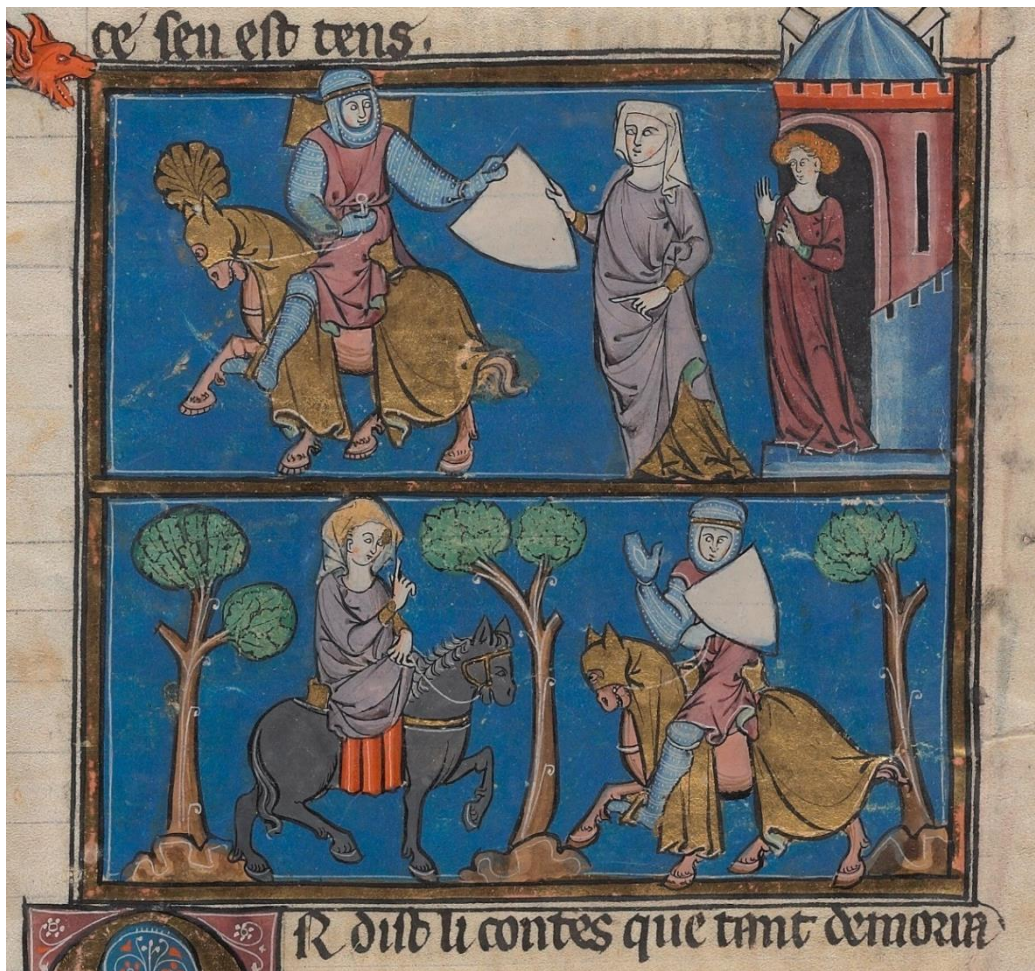 ce sen est tens.
R dist li contes que tant demora